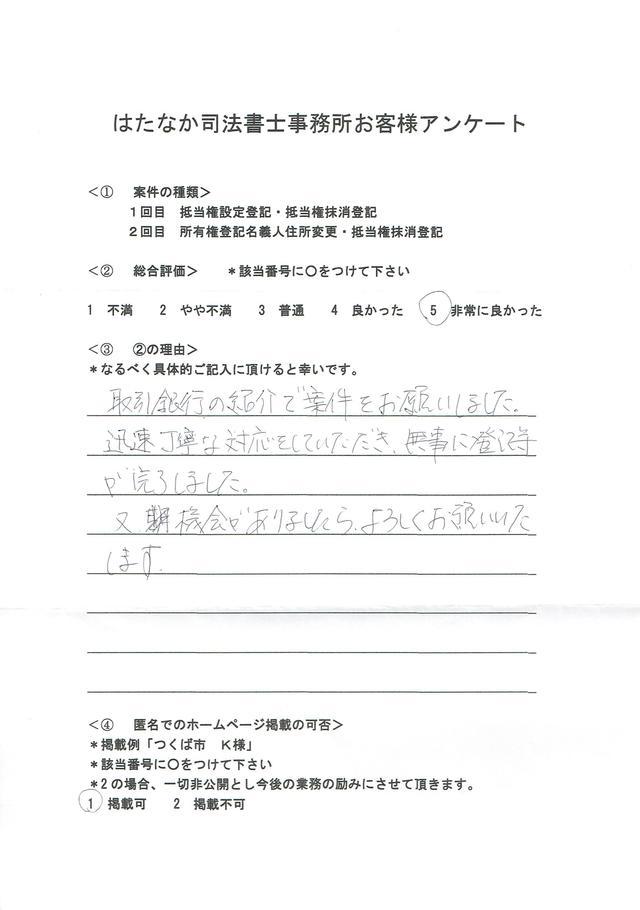 はたなか司法書士事務所お客様アンケート
＜① 案件の種類＞
１回目 抵当権設定登記・抵当権抹消登記
２回目 所有権登記名義人住所変更・抵当権抹消登記
＜② 総合評価＞ ＊該当番号に○をつけて下さい
1 不満 2 やや不満 3 普通 4 良かった 5 非常に良かった
＜③ ②の理由＞
＊なるべく具体的ご記入に頂けると幸いです。
取引銀行の紹介で案件をお願いしました。
迅速丁寧な対応をしていただき、無事に登記等
が完了しました。
又機会がありましたら、よろしくお願いいた
します。
＜④ 匿名でのホームページ掲載の可否＞
＊掲載例「つくば市 Ｋ様」
＊該当番号に○をつけて下さい
＊2の場合、一切非公開とし今後の業務の励みにさせて頂きます。
1 掲載可 2 掲載不可